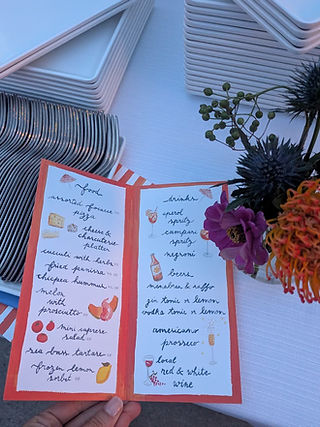 food
assorted focaccia
pizza
cheese &
charcuterie
platter
crudités with herbs
fried panissa
chickpea hummus
melon
with
prosciutto
mini caprese
salad
sea bass tartare
frozen lemon
sorbet
drinks
aperol
spritz
campari
spritz
negroni
beers
menabrea &
gin tonic n lemon
vodka tonic n lemon
americano
prosecco
local
red & white
wine